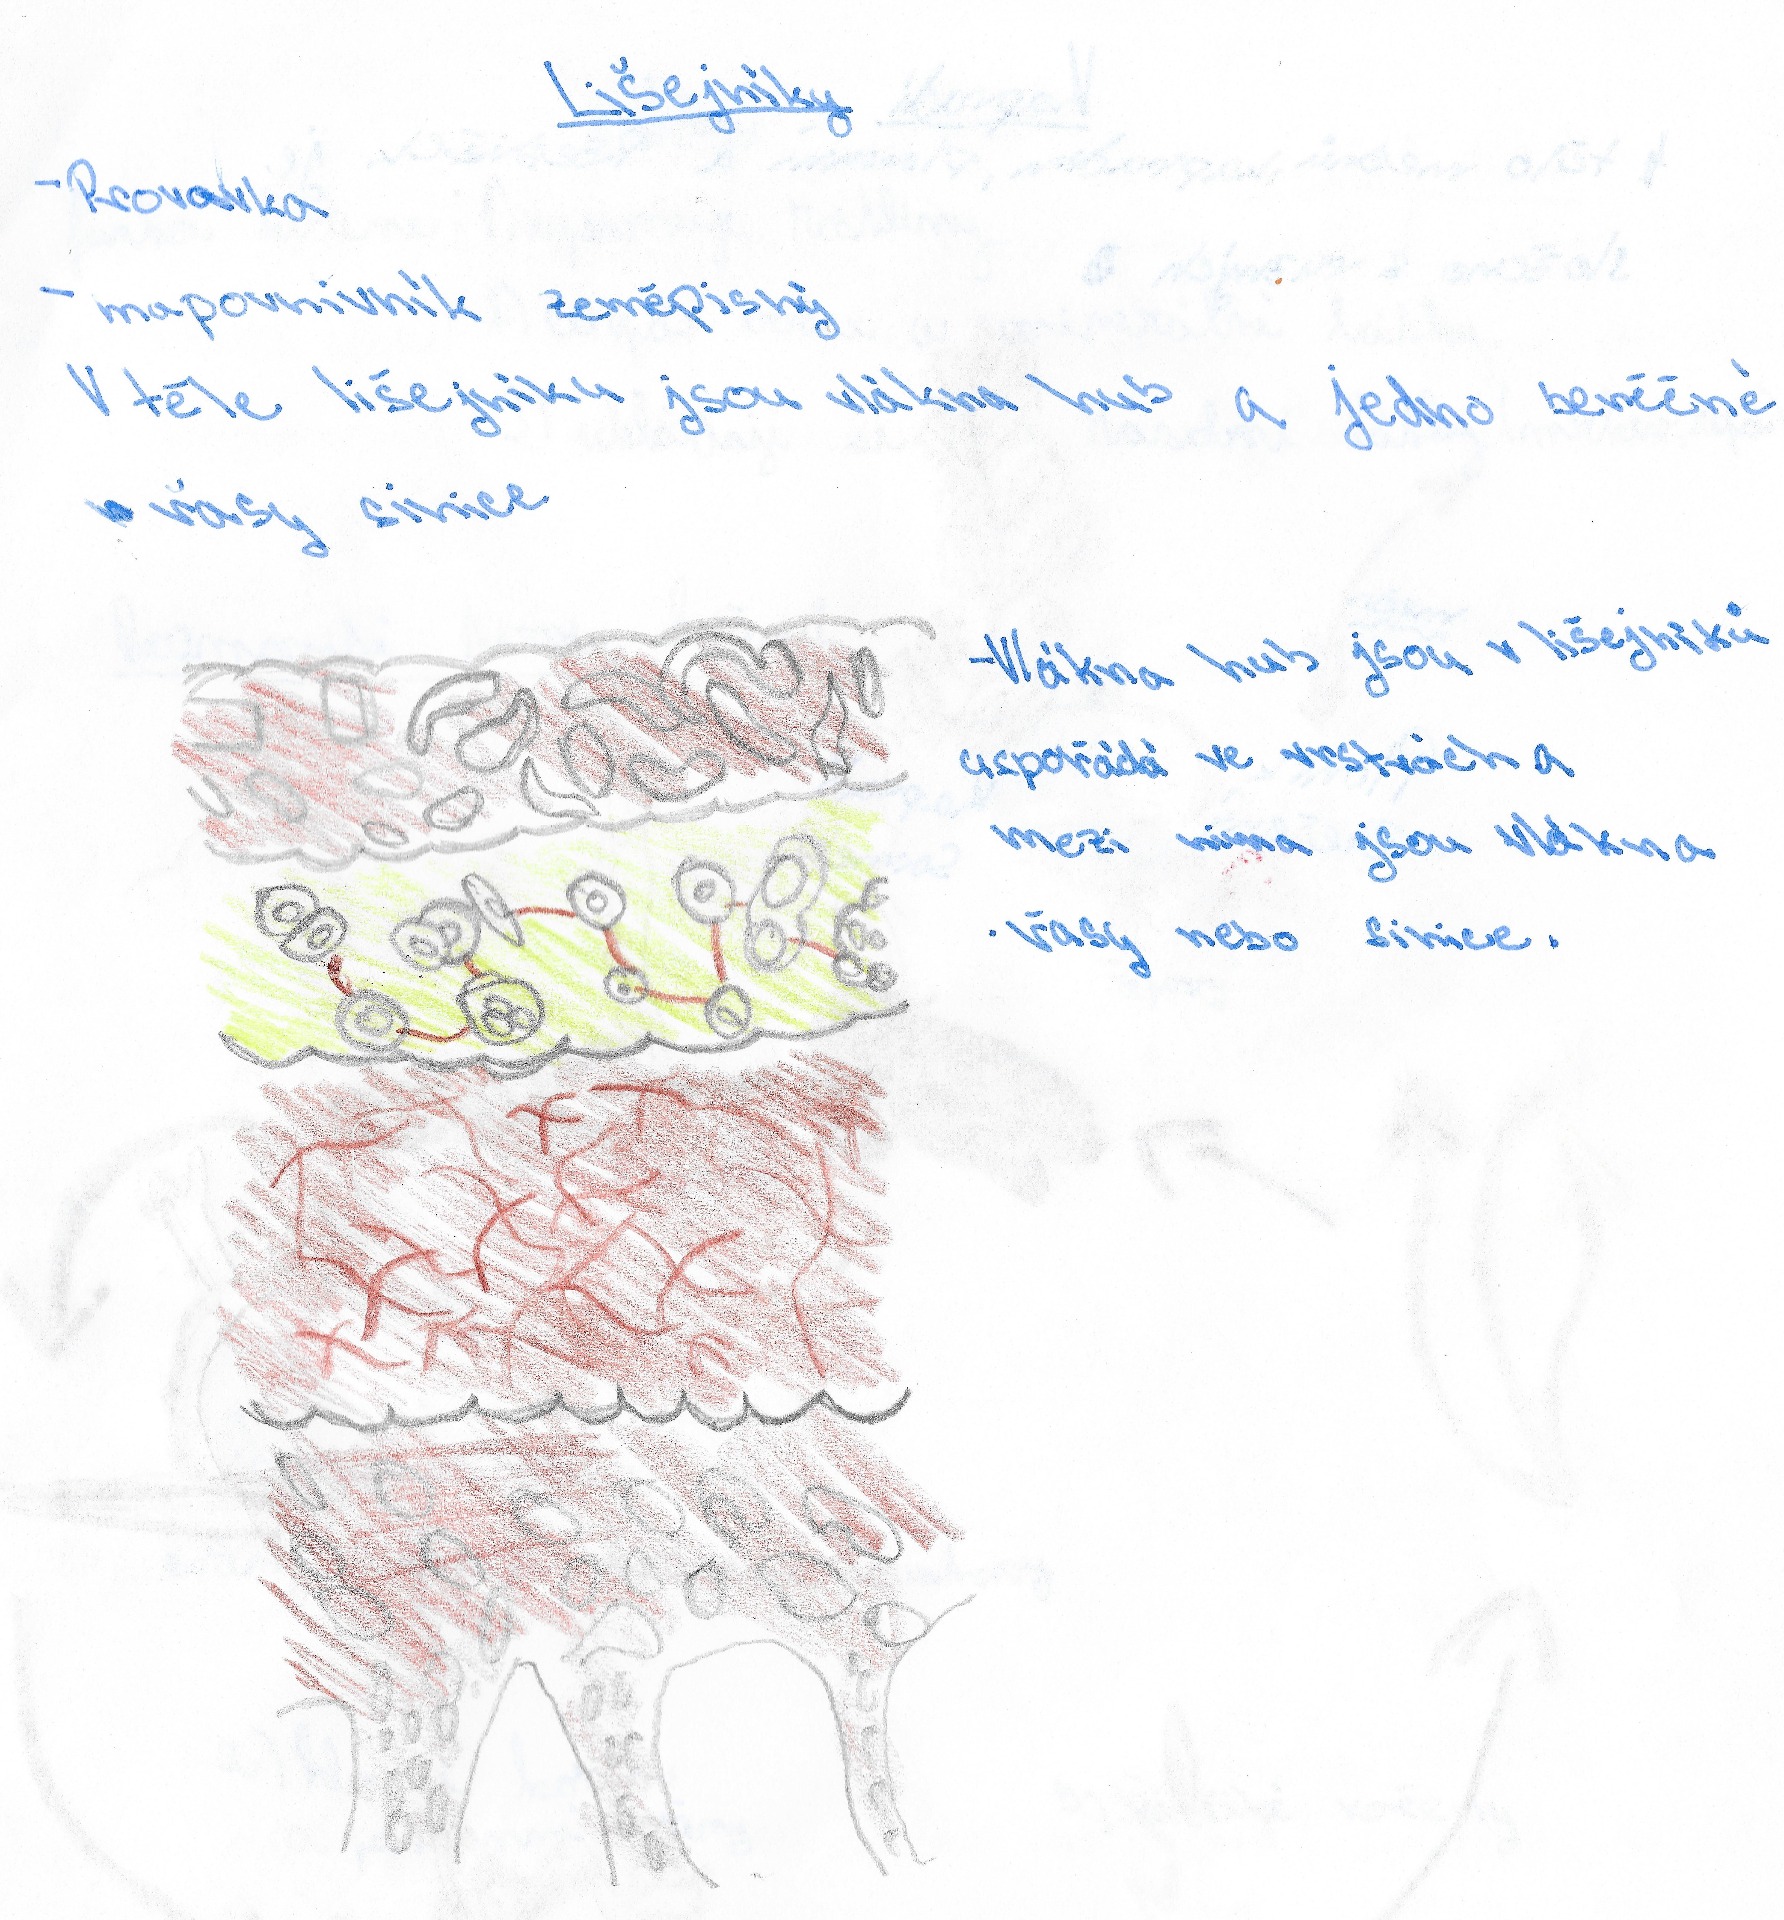 Lišejníky
- Rovovka
- mapovnivník zeměpisný
V těle lišejníku jsou vlákna hub a jedno beněčné
řasy sinice
- Vlákna hub jsou v lišejníků
uspořádá ve vrstvách a
mezi nima jsou vlákna
řasy nebo sinice.